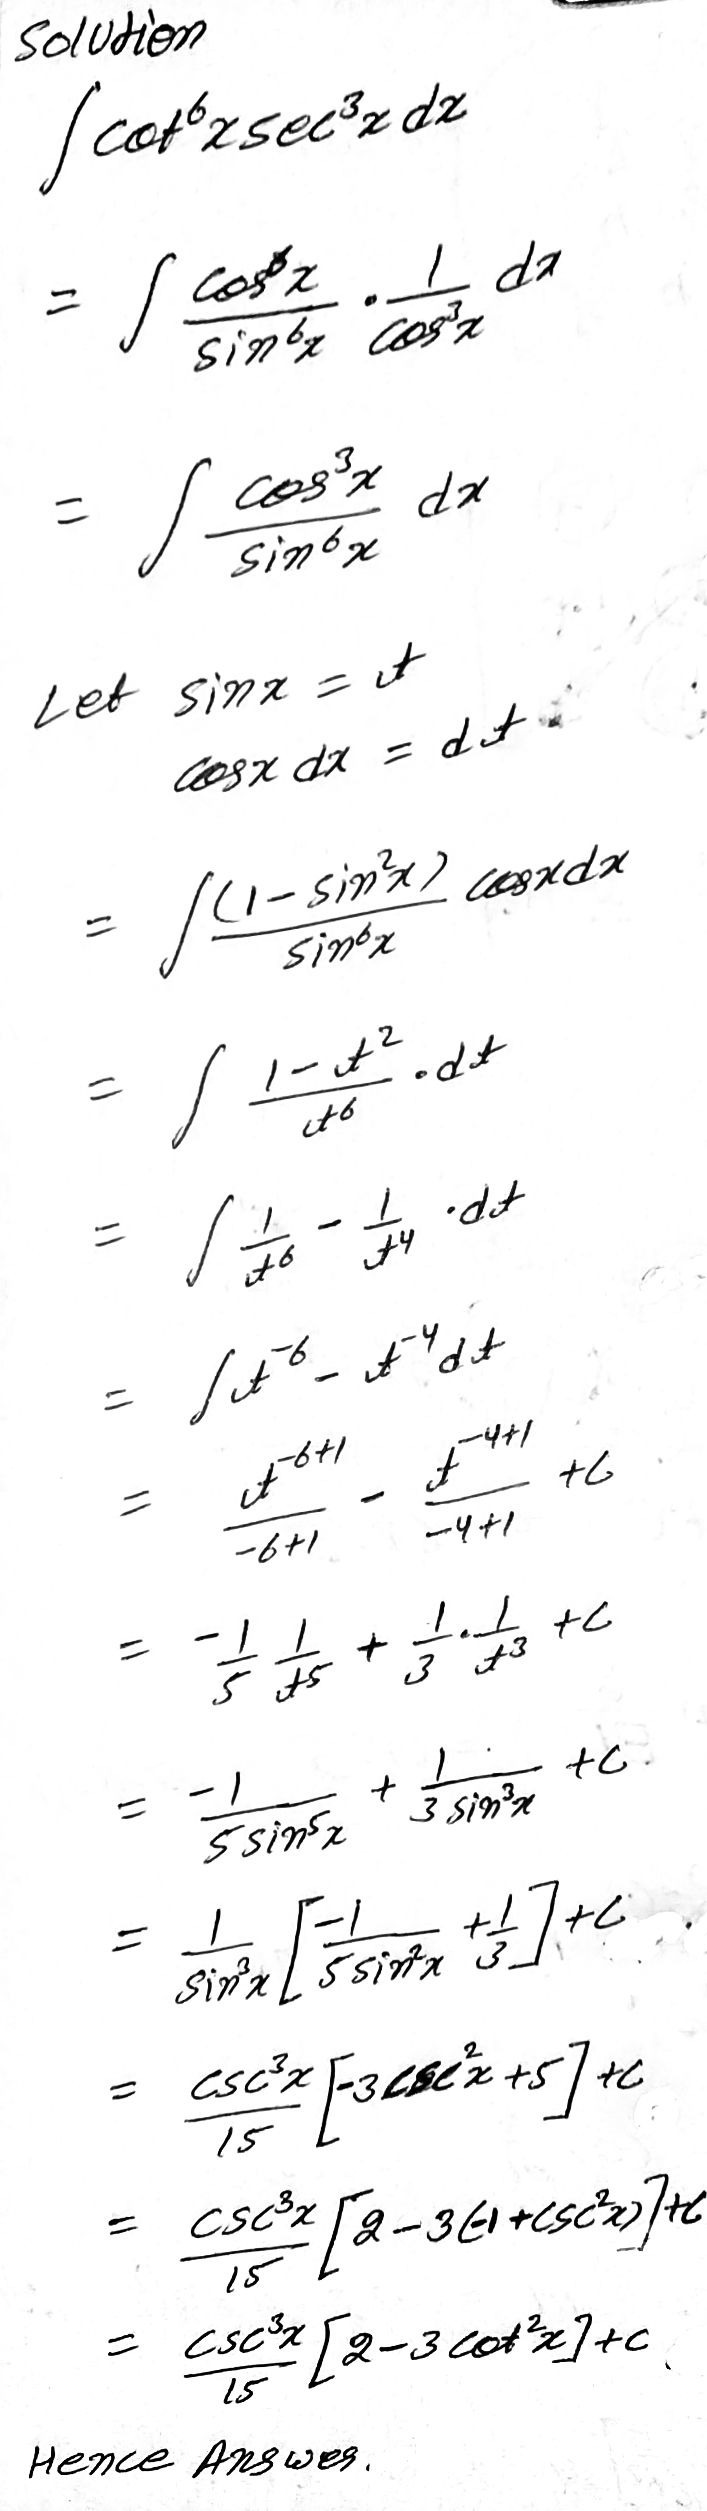 Solution
∫ cot⁶x sec³x dx
= ∫ cos⁶x/sin⁶x · 1/cos³x dx
= ∫ cos³x/sin⁶x dx
Let sinx = t
cosx dx = dt.
= ∫ (1 - sin²x)/sin⁶x cosx dx
= ∫ 1 - t²/t⁶ · dt
= ∫ 1/t⁶ - 1/t⁴ · dt
= ∫ t⁻⁶ - t⁻⁴ dt
= t⁻⁶⁺¹/-6+1 - t⁻⁴⁺¹/-4+1 + C
= -1/5 1/t⁵ + 1/3 · 1/t³ + C
= -1/5 sin⁵x + 1/3 sin³x + C.
= 1/sin³x [-1/5 sin²x + 1/3] + C.
= csc³x/15 [-3 csc²x + 5] + C
= csc³x/15 [2 - 3(-1 + csc²x)] + C
= csc³x/15 [2 - 3 cot²x] + C.
Hence Answer.